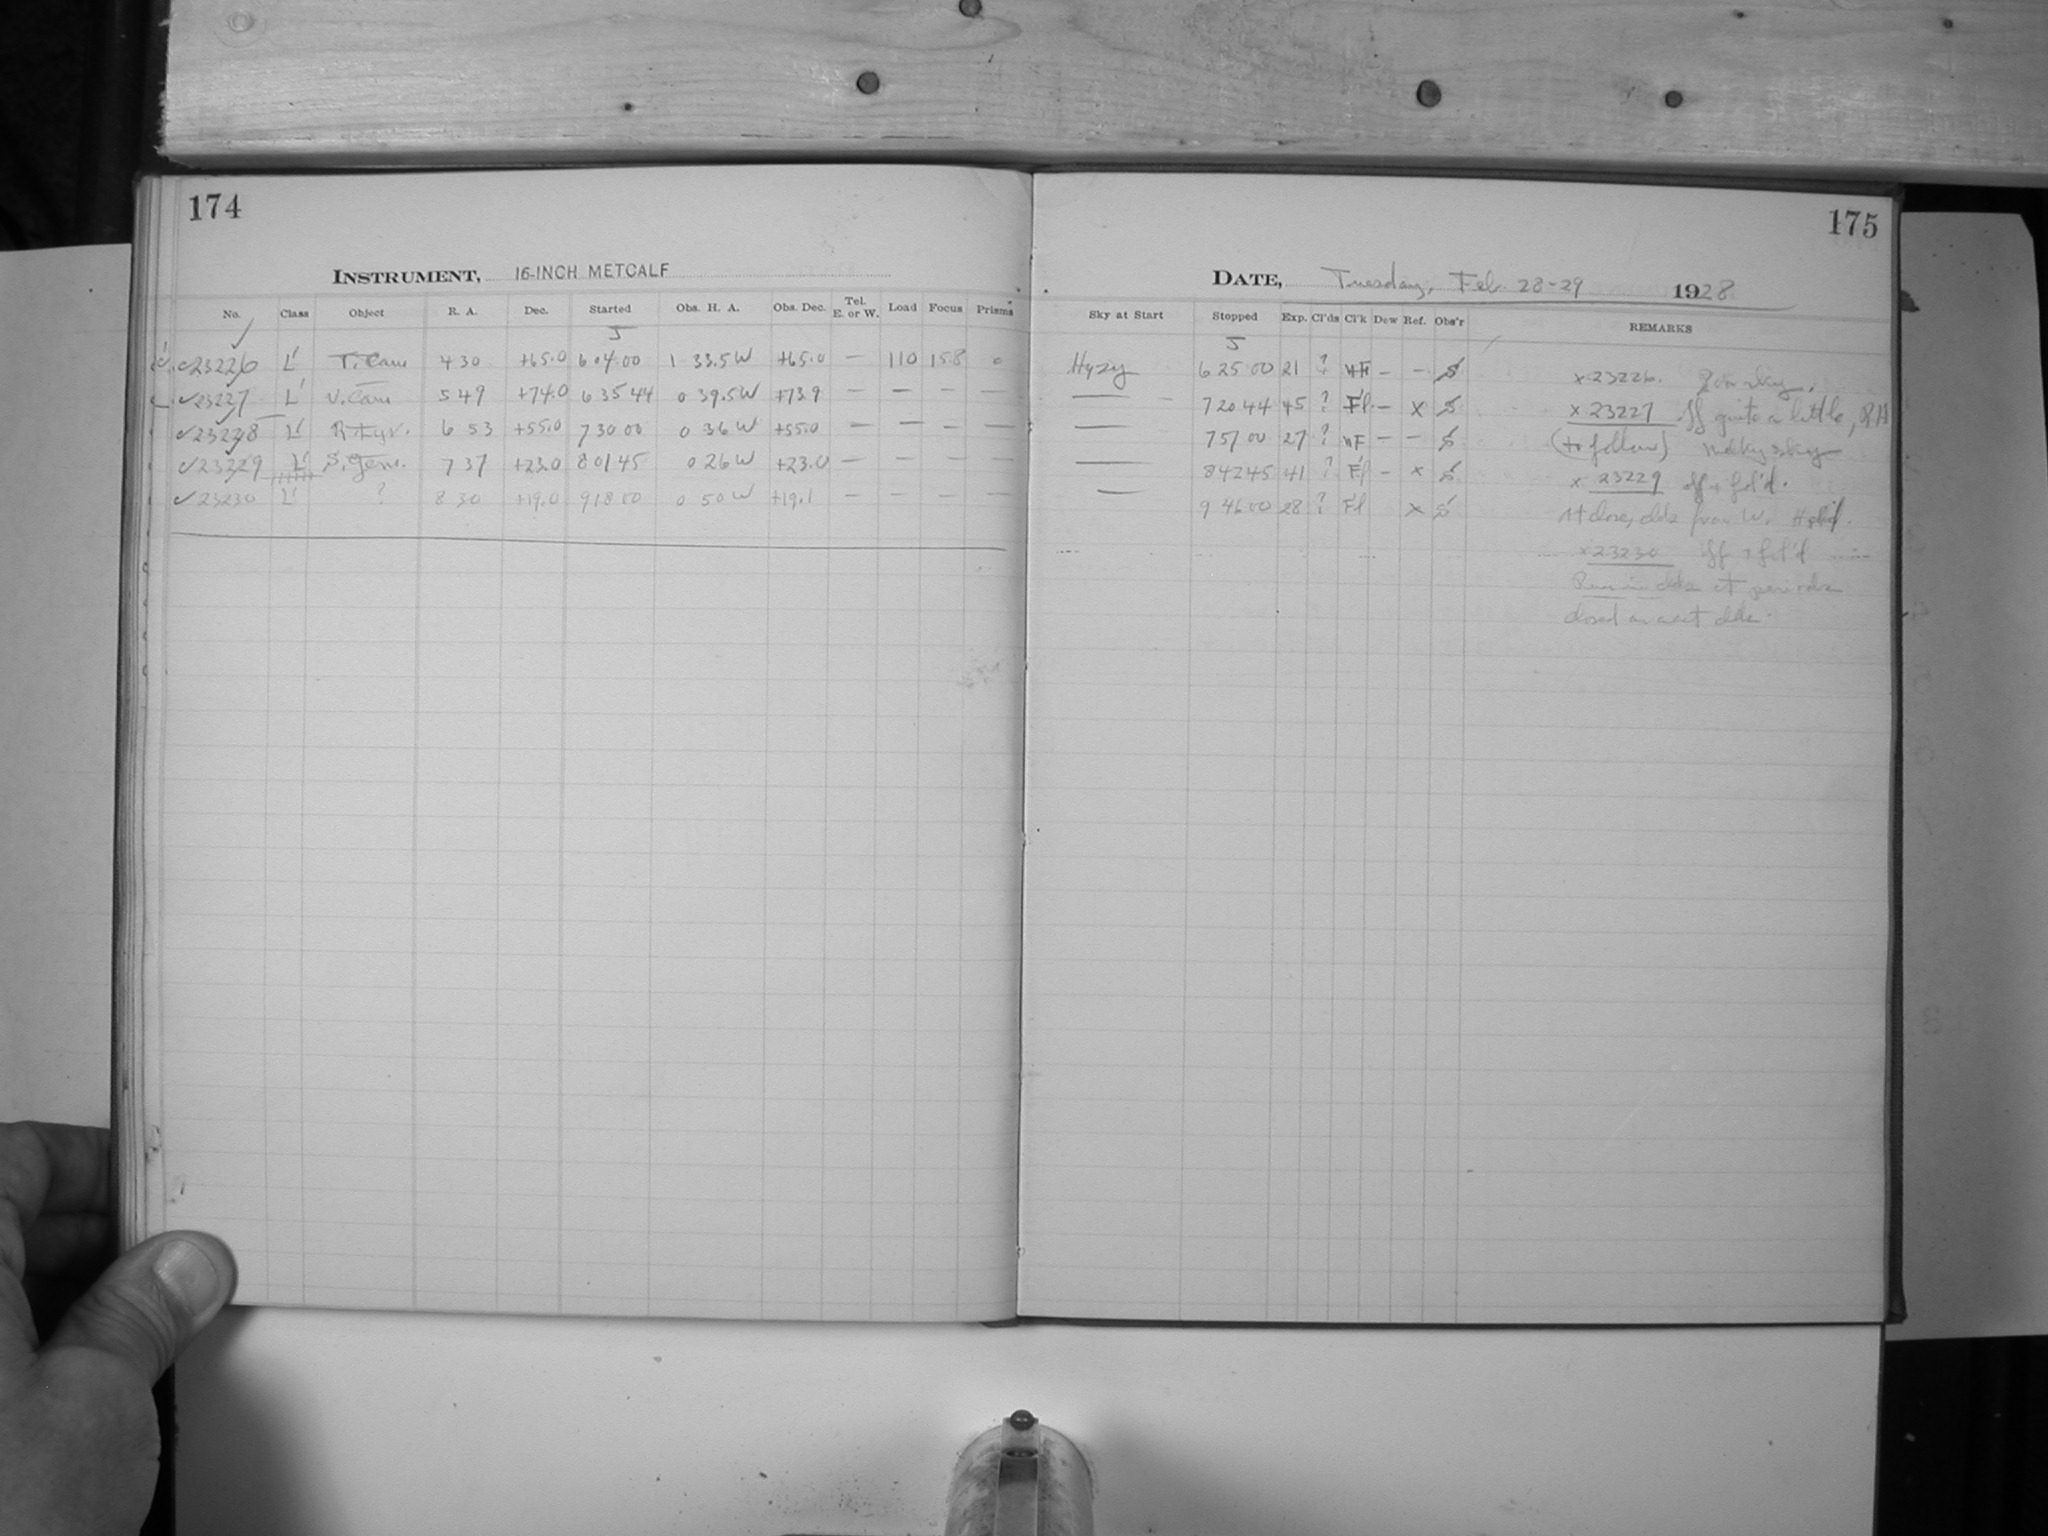 174
INSTRUMENT, 16-INCH METCALF
No. Class Object R. A. Dec. Started Obs. H. A. Obs. Dec. Tel. E. or W. Load Focus Prisms
J
✓23226 L' T. Cam 4 30 +65.0 6 04 00 1 33.5 W +65.0 — 110 15.8 0
✓23227 L' V. Cam 5 49 +74.0 6 35 44 0 39.5 W +73.9 — — — —
✓23228 L' R Lyn. 6 53 +55.0 7 30 00 0 36 W +55.0 — — — —
✓23229 L' S. Gem. 7 37 +23.0 8 01 45 0 26 W +23.0 — — — —
✓23230 L' ? 8 30 +19.0 9 18 00 0 50 W +19.1 — — — —
175
DATE, Tuesday, Feb. 28-29 1928
Sky at Start Stopped Exp. Cl'ds Cl'k Dew Ref. Obs'r REMARKS
J
Hyzy 6 25 00 21 ? nF — — S x 23226. sky.
— 7 20 44 45 ? Fl — x S x 23227 off quite a little, RA
— 7 57 00 27 ? nF — — S (to follow) Milky sky
— 8 42 45 41 ? Fl — x S x 23229 off + fol'd.
— 9 46 00 28 ? Fl x S At close, clds from W.
x 23230 off + fol'd
clds at periods
closed on acct clds.